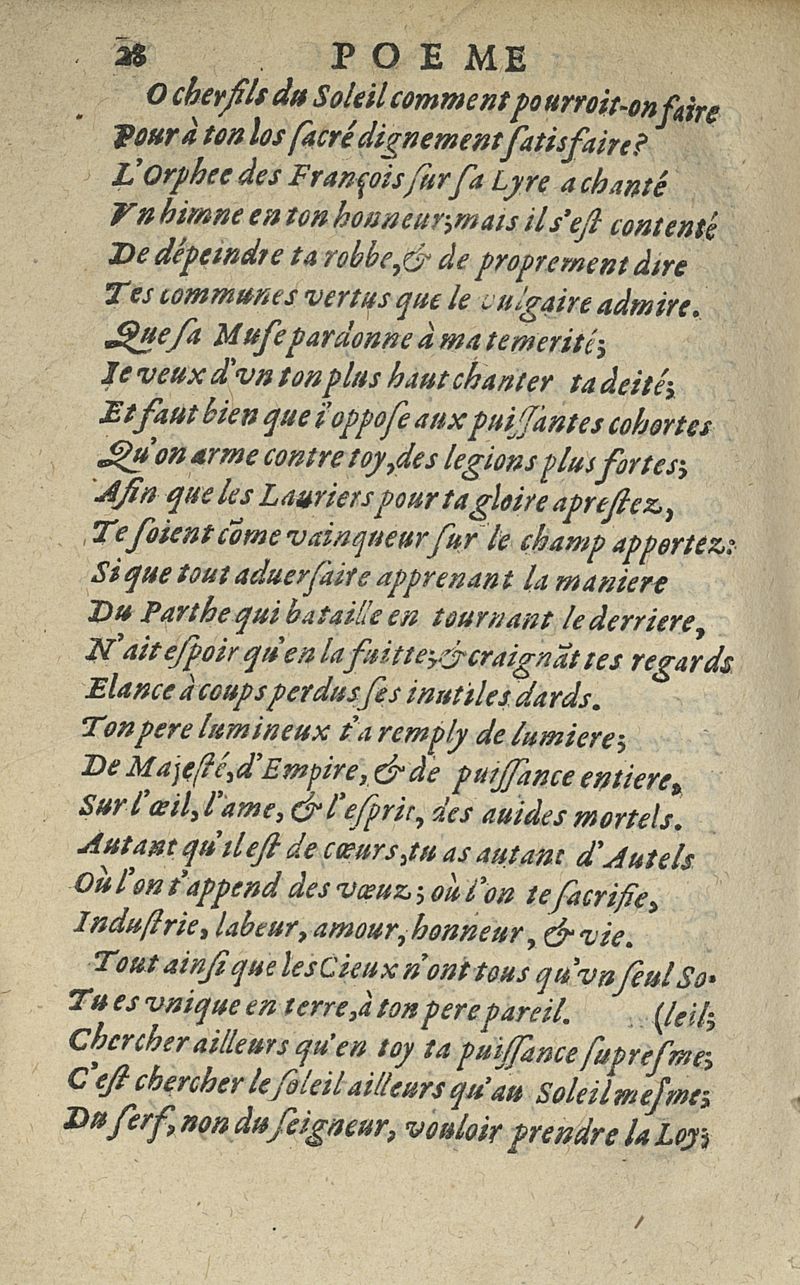 28 POEME
O cher fils du Soleil comment pourroit-on faire
Pour à ton los ſacré dignement ſatisfaire?
L'Orphee des François ſur ſa Lyre a chanté
Vn himne en ton honneur; mais il s'eſt contenté
De dépeindre ta robbe, & de proprement dire
Tes communes vertus que le vulgaire admire.
Que ſa Muſe pardonne à ma temerité;
Ie veux d'vn ton plus haut chanter ta deité;
Et faut bien que i'oppoſe aux puiſſantes cohortes
Qu'on arme contre toy, des legions plus fortes;
Afin que les Lauriers pour ta gloire apreſtez,
Te ſoient cõme vainqueur ſur le champ apportez:
Si que tout aduerſaire apprenant la maniere
Du Parthe qui bataille en tournant le derriere,
N'ait eſpoir qu'en la fuitte; & craignãt tes regards
Elance à coups perdus ſes inutiles dards.
Ton pere lumineux t'a remply de lumiere;
De Majeſté, d'Empire, & de puiſſance entiere,
Sur l'œil, l'ame, & l'eſprit, des auides mortels.
Autant qu'il eſt de cœurs, tu as autant d'Autels
Où l'on t'append des vœuz; où l'on te ſacrifie,
Induſtrie, labeur, amour, honneur, & vie.
Tout ainſi que les Cieux n'ont tous qu'vn ſeul So-
Tu es vnique en terre, à ton pere pareil. (leil;
Chercher ailleurs qu'en toy ta puiſſance ſupreſme;
C'eſt chercher le ſoleil ailleurs qu'au Soleil meſme;
Du ſerf, non du ſeigneur, vouloir prendre la Loy;